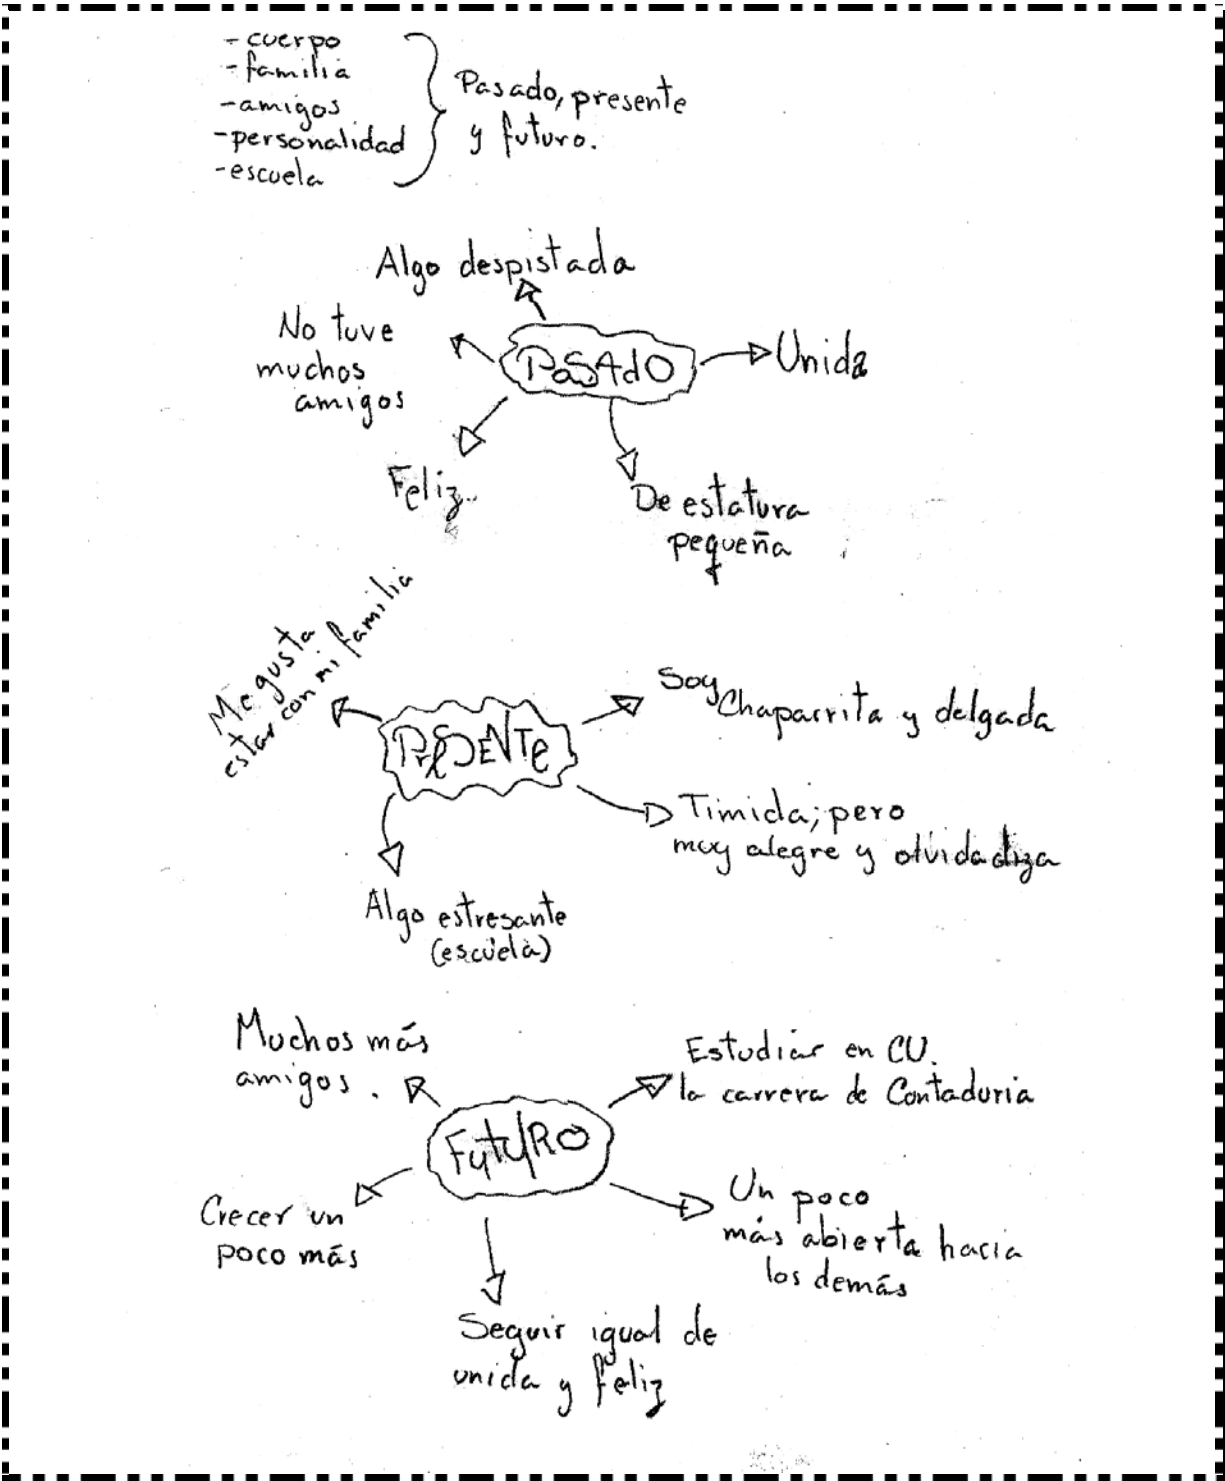 - cuerpo
- familia
- amigos
- personalidad
- escuela
Pasado, presente
y futuro.
Algo despistada
No tuve
muchos
amigos
PaSAdO
Unida
Feliz.
De estatura
pequeña
Me gusta
estar con mi familia
PreSENTe
Soy
Chaparrita y delgada
Timida; pero
muy alegre y olvidadiza
Algo estresante
(escuela)
Muchos más
amigos.
Estudiar en CU.
la carrera de Contaduria
FutuRO
Crecer un
poco más
Un poco
más abierta hacia
los demás
Seguir igual de
unida y feliz